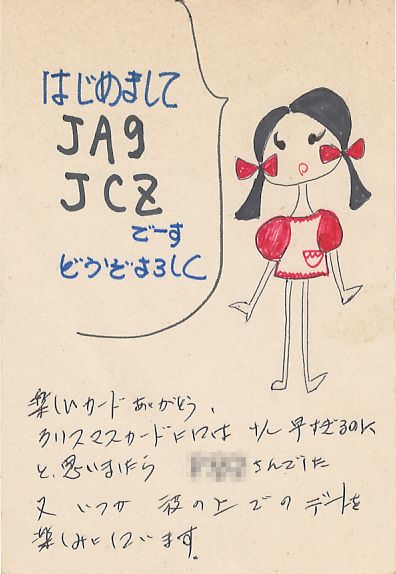 はじめまして
JA9
JCZ
でーす
どうぞよろしく
楽しいカードありがとう、
クリスマスカードにしては 少し早すぎるのに
と、思いましたら さんでした
又 いつか 波の上でのデートを
楽しみにしています。